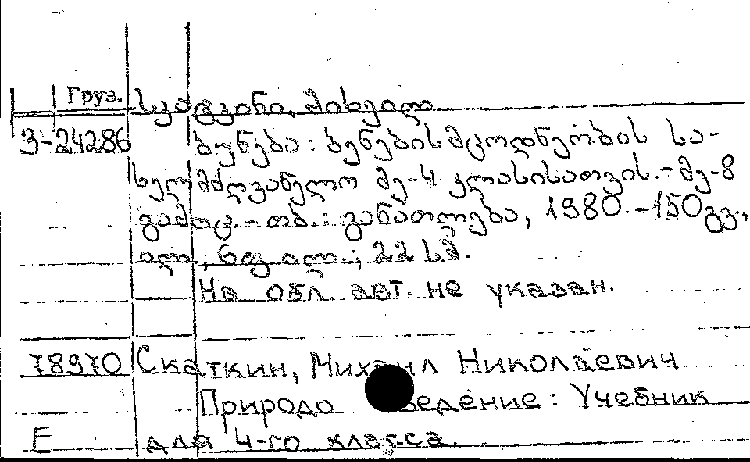 Груз. სკატკინი, მიხეილ
3-24286 ბუნება: ბუნებისმცოდნეობის სა-
ხელმძღვანელო მე-4 კლასისათვის.-მე-8
გამოც.-თბ.: განათლება, 1980.-150გვ.,
ილ., 6ფ. ილ.; 22 სმ.
На обл. авт. не указан.
78970 Скаткин, Михаил Николаевич
Природо ведение: Учебник
Е для 4-го класса.